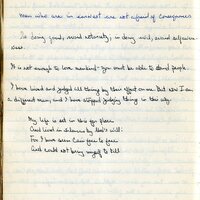 Men who are in earnest are not afraid of consequences
In doing good, avoid notoriety, in doing evil, avoid self-
It is not enough to love mankind – you must be able to stand people.
I have lived and judged all things by their effect on me. But now I am
a different man, and I have stopped judging things in this way.
My life is set in this far place
And lived in silence by God's will:
For I have seen Cain face to face
And could not bring myself to kill